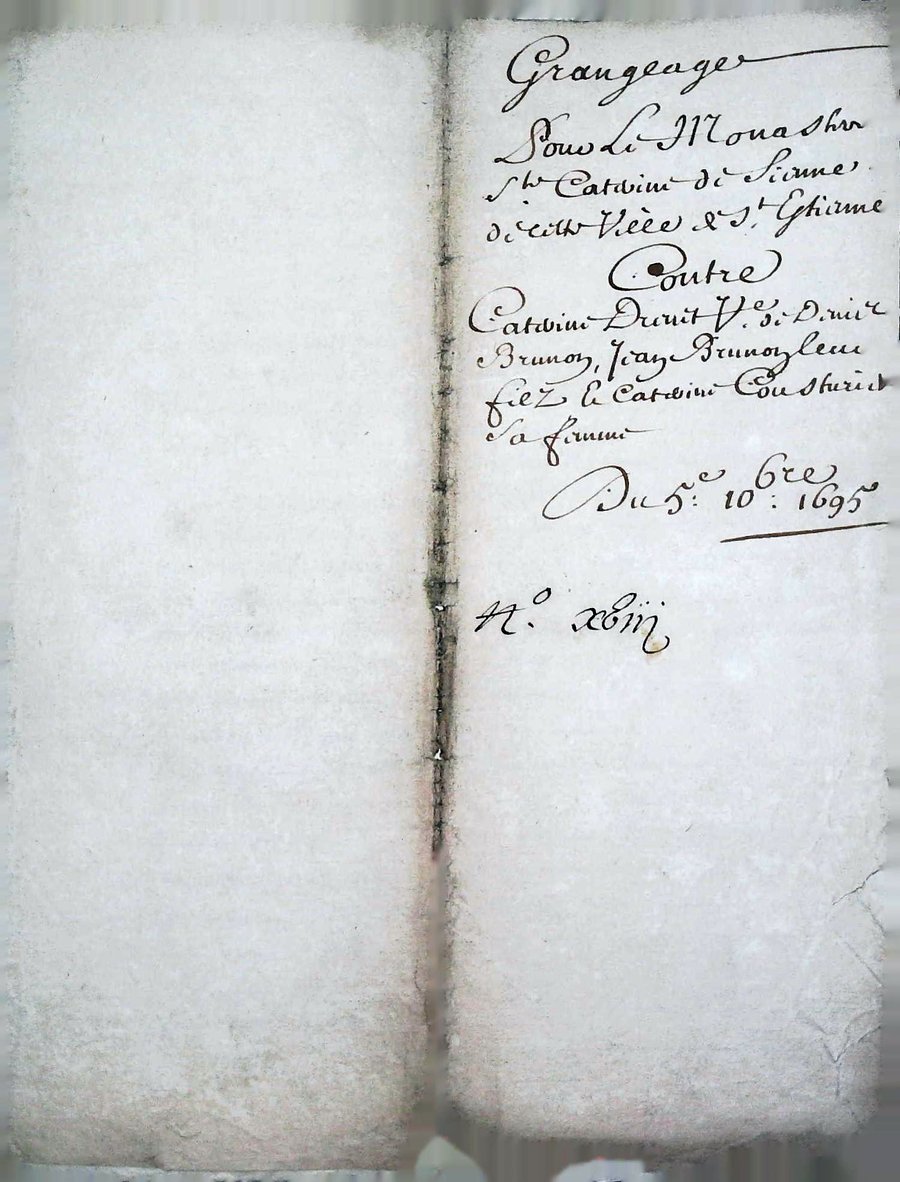 Grangeage
Pour Le Monastere
Ste Caterine de Sienne
de cette Ville de St. Estienne
Contre
Caterine Drevet Ve. de Denier
Brunon, Jean Brunon leur
filz & Caterine Cousturier
sa femme
Du 5e: 10bre: 1695
N.o xviij